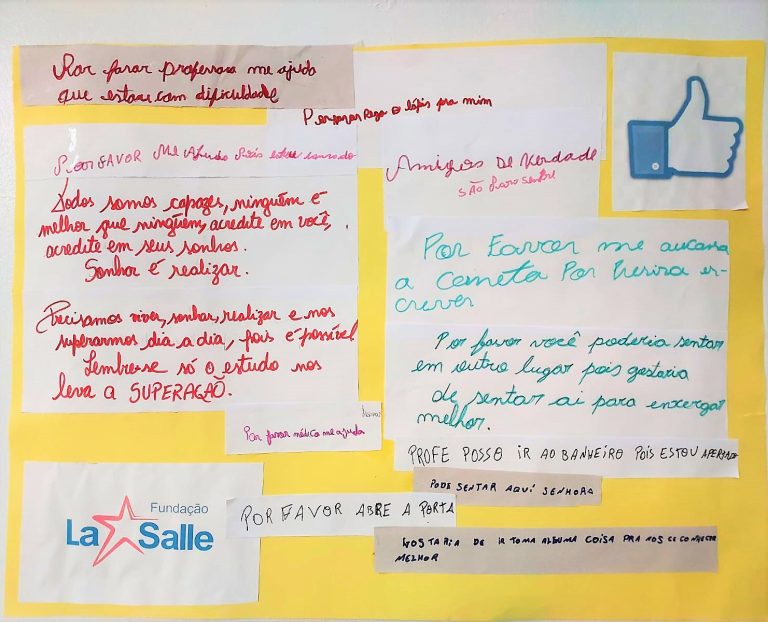 Por farar professora me ajuda
que estou com dificuldade
Por favor Pega o lápis pra mim
POR FAVOR Me Ajuda Pois estou cansado
Amigos De Verdade
SÃO Para sempre
Todos somos capazes, ninguém é
melhor que ninguém, acredite em você,
acredite em seus sonhos.
Sonhar é realizar.
Por Favor me
a Caneta Por es-
crever
Precisamos viver, sonhar, realizar e nos
superarmos dia a dia, pois é possível
Lembre-se só o estudo nos
leva a SUPERAÇÃO.
Por favor você poderia sentar
em outro lugar pois gostaria
de sentar ai para enxergar
melhor.
Por favor médico me ajuda
PROFE POSSO IR AO BANHEIRO POIS ESTOU APERTADO
PODE SENTAR AQUÍ SENHORA
Fundação
La Salle
POR FAVOR ABRE A PORTA
GOSTARIA DE IR TOMA ALGUMA COISA PRA NOS CONHECER
MELHOR